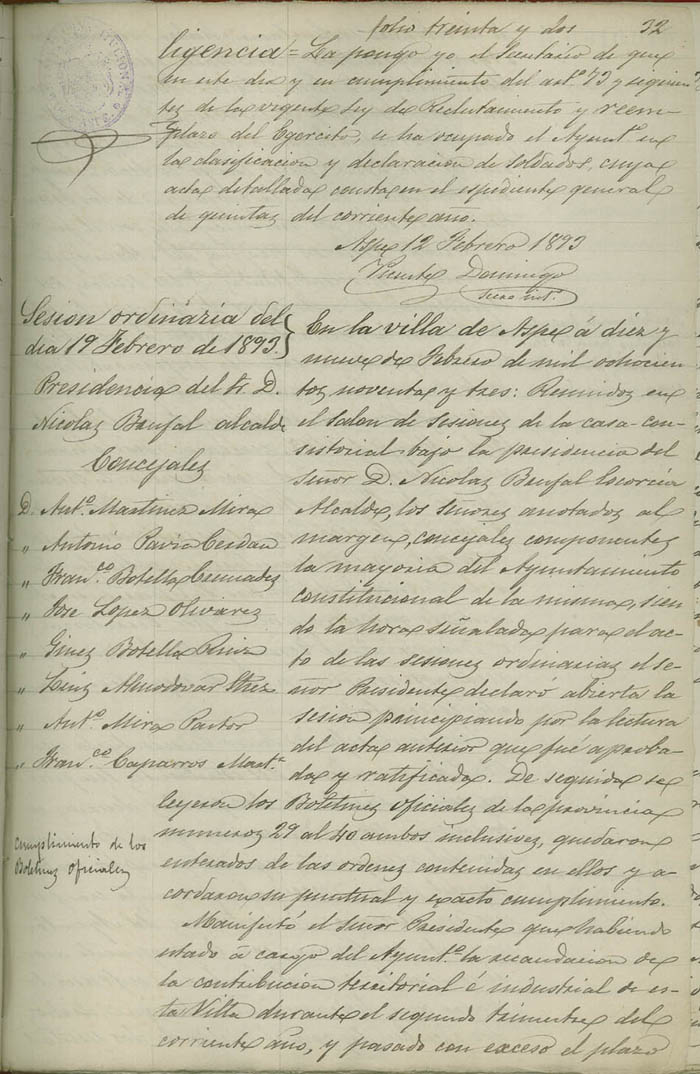 folio treinta y dos 32
ligencia = La pongo yo el Secretario de que
en este dia y en cumplimiento del art.º 73 y siguien
tes de la vigente Ley de Reclutamiento y reem-
plazo del Egercito, se ha ocupado el Ayunt.º en
la clasificacion y declaracion de Soldados, cuya
acta detallada consta en el espediente general
de quintas del corriente año.
Aspe 12 Febrero 1893
Vicente Domingo
Secro int.º
Sesion ordinaria del
dia 19 Febrero de 1893.
Presidencia del Sr. D.
Nicolas Bonfal alcalde
Concejales
D. Ant.º Martinez Mira
" Antonio Pavia Cerdan
" Fran.co Botella Cremades
" Jose Lopez Olivarez
" Ginez Botella Ruiz
" Luiz Almodovar
" Ant.º Mira Pastor
" Fran.co Caparros Mart.z
En la villa de Aspe á diez y
nueve de Febrero de mil ochocien
tos noventa y tres: Reunidos en
el Salon de Sesiones de la casa con-
sistorial bajo la presidencia del
Señor D. Nicolas Bonfal
Alcalde, los Señores anotados al
margen, concejales componentes
la mayoria del Ayuntamiento
constitucional de la misma, sien
do la hora señalada para el ac-
to de las sesiones ordinarias el se-
ñor Presidente declaró abierta la
sesion principiando por la lectura
del acta anterior que fué aproba-
da y ratificada. De seguida se
leyeron los Boletines oficiales de la provincia
numeros 29 al 40 ambos inclusives, quedaron
enterados de las ordenes contenidas en ellos y a-
cordaron su puntual y exacto cumplimento.
cumplimiento de los
Boletines oficiales
Manifestó el señor Presidente que habiendo
estado á cargo del Ayunt.º la recaudacion de
la contribucion territorial é industrial de es-
ta Villa durante el segundo trimestre del
corriente año, y pasado con exceso el plazo